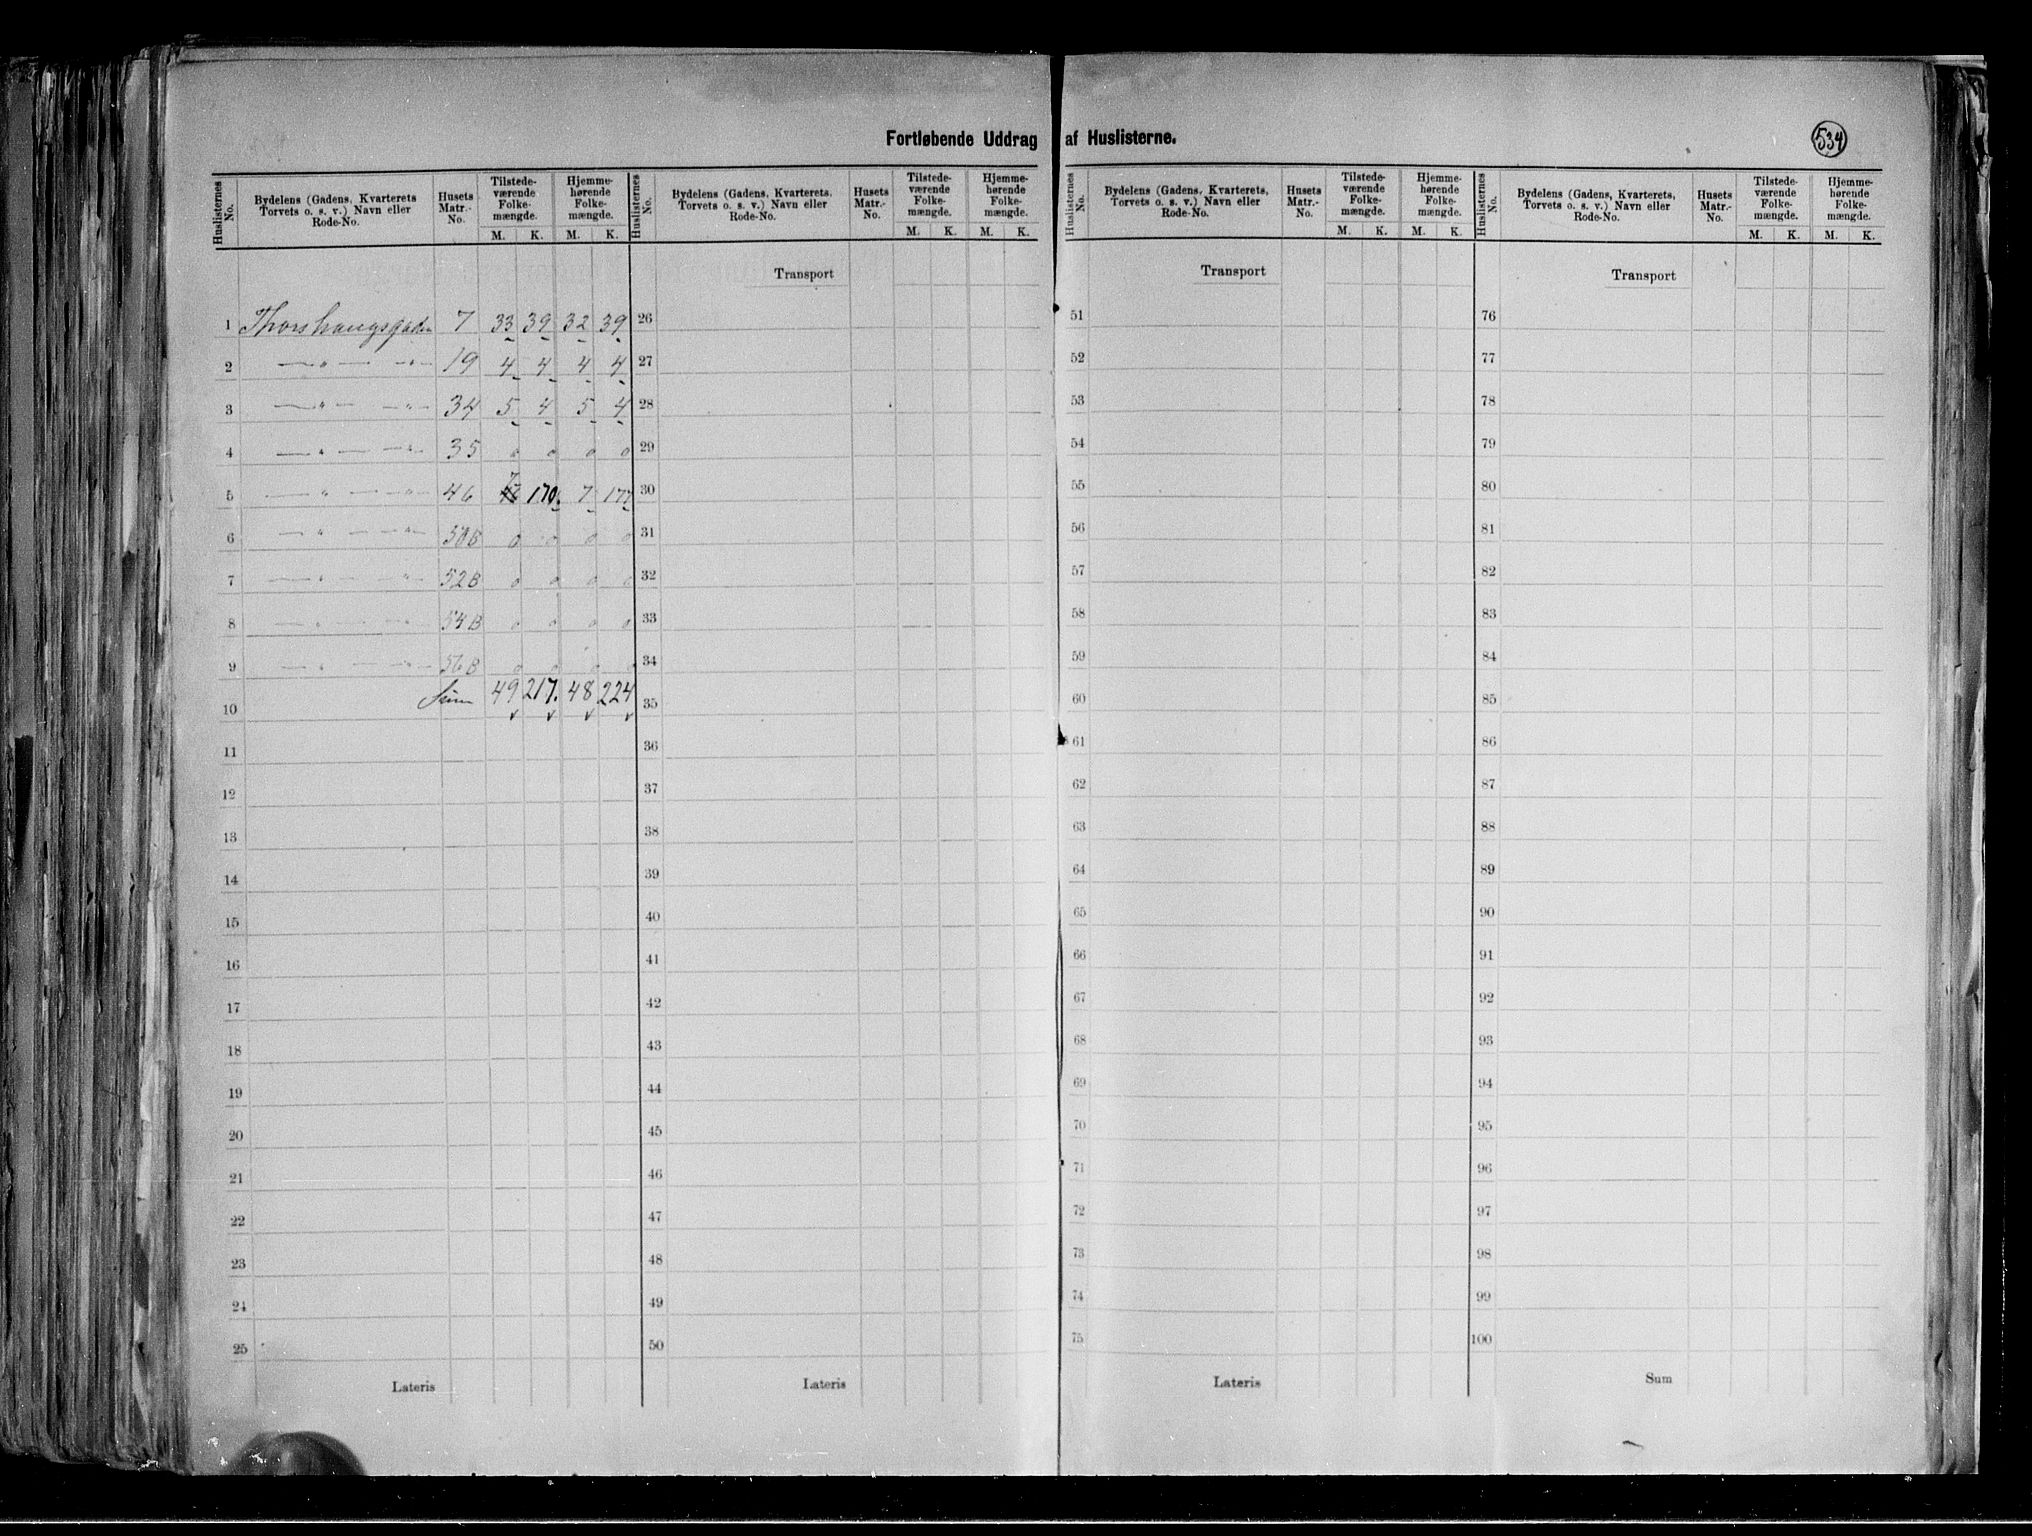 Fortløbende Uddrag af Huslisterne.
534
Huslisternes No. | Bydelens (Gadens, Kvarterets Torvets o. s. v.) Navn eller Rode-No. | Husets Matr.-No. | Tilstedeværende Folkemængde. M. K. | Hjemmehørende Folkemængde. M. K.
Huslisternes No. | Bydelens (Gadens, Kvarterets, Torvets o. s. v.) Navn eller Rode-No. | Husets Matr.-No. | Tilstedeværende Folkemængde. M. K. | Hjemmehørende Folkemængde. M. K.
Huslisternes No. | Bydelens (Gadens, Kvarterets, Torvets o. s. v.) Navn eller Rode-No. | Husets Matr.-No. | Tilstedeværende Folkemængde. M. K. | Hjemmehørende Folkemængde. M. K.
Huslisternes No. | Bydelens (Gadens, Kvarterets, Torvets o. s. v.) Navn eller Rode-No. | Husets Matr.-No. | Tilstedeværende Folkemængde. M. K. | Hjemmehørende Folkemængde. M. K.
Transport Transport Transport
1 Thorshaugsgaden 7 33 39 32 39 26 51 76
2 — " — — " — 19 4 4 4 4 27 52 77
3 — " — — " — 34 5 4 5 4 28 53 78
4 — " — — " — 35 0 0 0 0 29 54 79
5 — " — — " — 46 7 170. 7 177 30 55 80
6 — " — — " — 50B 0 0 0 0 31 56 81
7 — " — " — 52B 0 0 0 0 32 57 82
8 — " — — " — 54B 0 0 0 0 33 58 83
9 — " — — " — 56B 0 0 0 0 34 59 84
10 Sum 49 217. 48 224 35 60 85
11 36 61 86
12 37 62 87
13 38 63 88
14 39 64 89
15 40 65 90
16 41 66 91
17 42 67 92
18 43 68 93
19 44 69 94
20 45 70 95
21 46 71 96
22 47 72 97
23 48 73 98
24 49 74 99
25 50 75 100
Lateris Lateris Lateris Sum